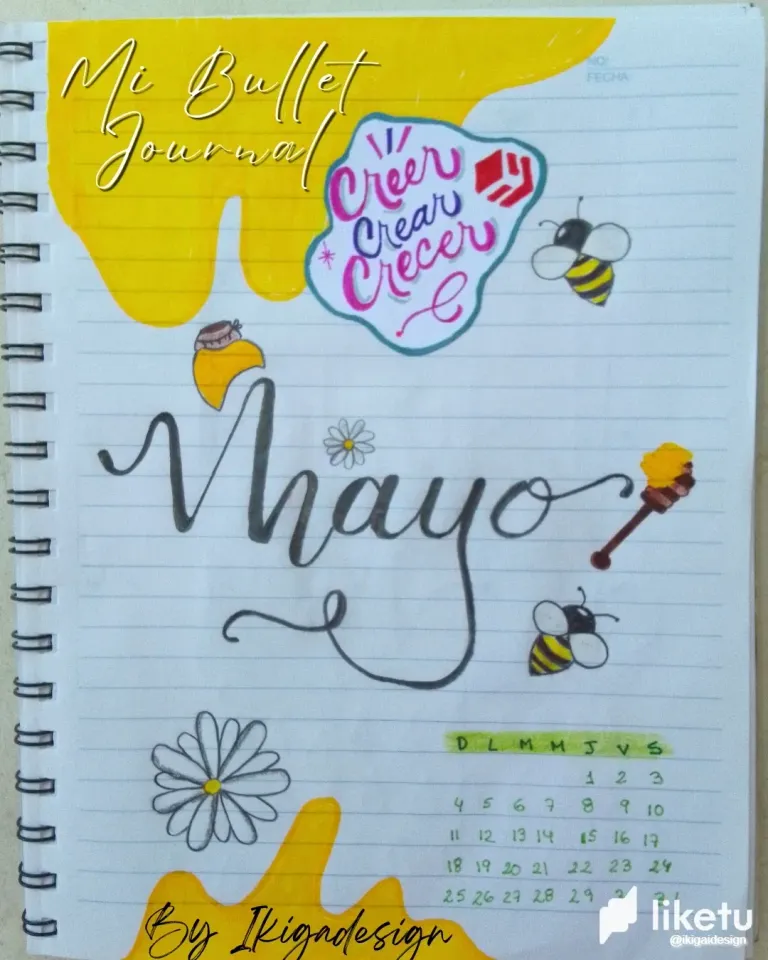 Mi Bullet
Journal
NO:
FECHA:
Creer
Crear
Crecer
Mayo
D L M M J V S
1 2 3
4 5 6 7 8 9 10
11 12 13 14 15 16 17
18 19 20 21 22 23 24
25 26 27 28 29
By Ikigadesign
liketu
@ikigaidesign